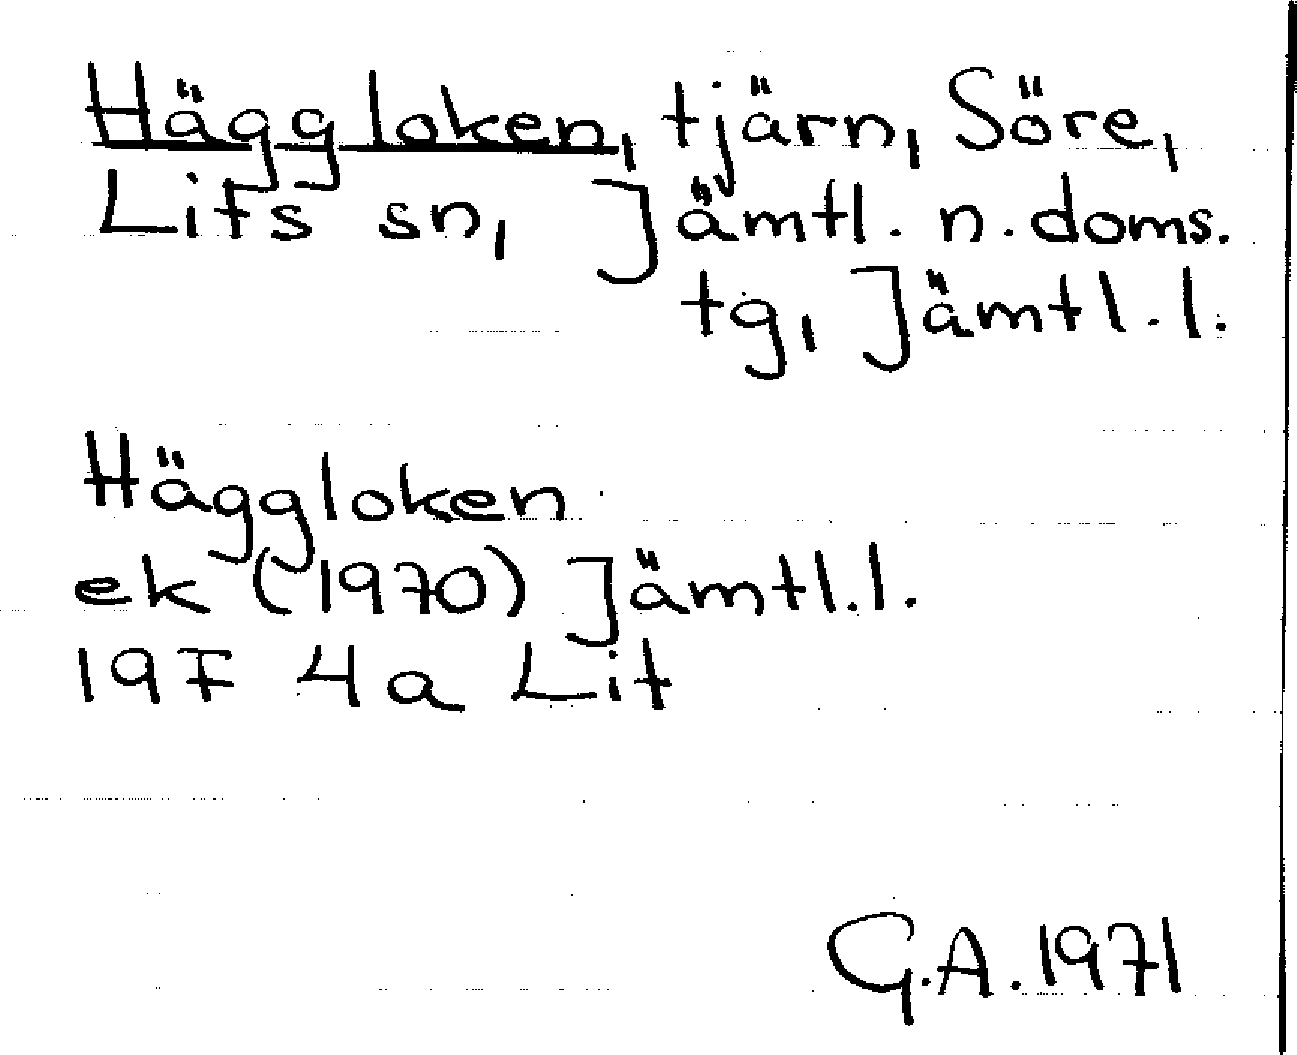 Häggloken, tjärn, Söre,
Lits sn, Jämtl. n. doms.
tg, Jämtl. l.
Häggloken
ek (1970) Jämtl. l.
19F 4a Lit
G.A. 1971